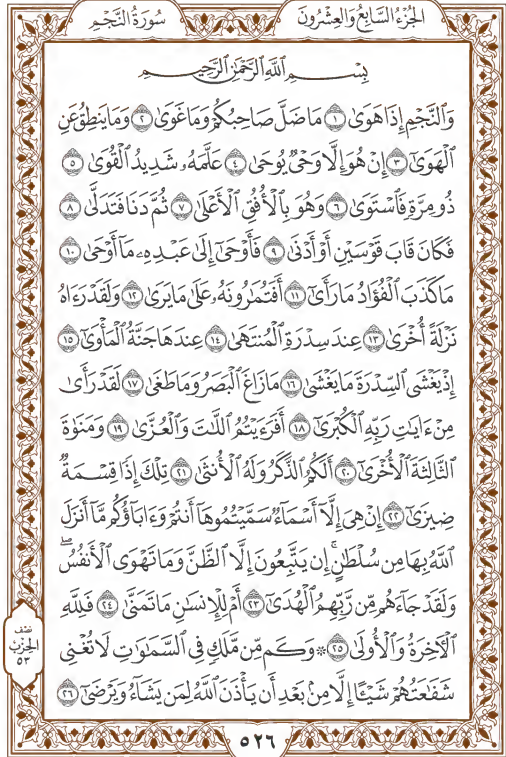 سُورَةُ النَّجْمِ
الجُزْءُ السَّابِعُ وَالعِشْرُونَ
بِسْمِ ٱللَّهِ ٱلرَّحْمَٰنِ ٱلرَّحِيمِ
وَٱلنَّجْمِ إِذَا هَوَىٰ ١ مَا ضَلَّ صَاحِبُكُمْ وَمَا غَوَىٰ ٢ وَمَا يَنطِقُ عَنِ
ٱلْهَوَىٰٓ ٣ إِنْ هُوَ إِلَّا وَحْىٌ يُوحَىٰ ٤ عَلَّمَهُۥ شَدِيدُ ٱلْقُوَىٰ ٥
ذُو مِرَّةٍ فَٱسْتَوَىٰ ٦ وَهُوَ بِٱلْأُفُقِ ٱلْأَعْلَىٰ ٧ ثُمَّ دَنَا فَتَدَلَّىٰ ٨
فَكَانَ قَابَ قَوْسَيْنِ أَوْ أَدْنَىٰ ٩ فَأَوْحَىٰٓ إِلَىٰ عَبْدِهِۦ مَآ أَوْحَىٰ ١٠
مَا كَذَبَ ٱلْفُؤَادُ مَا رَأَىٰٓ ١١ أَفَتُمَٰرُونَهُۥ عَلَىٰ مَا يَرَىٰ ١٢ وَلَقَدْ رَءَاهُ
نَزْلَةً أُخْرَىٰ ١٣ عِندَ سِدْرَةِ ٱلْمُنتَهَىٰ ١٤ عِندَهَا جَنَّةُ ٱلْمَأْوَىٰٓ ١٥
إِذْ يَغْشَى ٱلسِّدْرَةَ مَا يَغْشَىٰ ١٦ مَا زَاغَ ٱلْبَصَرُ وَمَا طَغَىٰ ١٧ لَقَدْ رَأَىٰ
مِنْ ءَايَٰتِ رَبِّهِ ٱلْكُبْرَىٰٓ ١٨ أَفَرَءَيْتُمُ ٱللَّٰتَ وَٱلْعُزَّىٰ ١٩ وَمَنَوٰةَ
ٱلثَّالِثَةَ ٱلْأُخْرَىٰٓ ٢٠ أَلَكُمُ ٱلذَّكَرُ وَلَهُ ٱلْأُنثَىٰ ٢١ تِلْكَ إِذًا قِسْمَةٌ
ضِيزَىٰٓ ٢٢ إِنْ هِىَ إِلَّآ أَسْمَآءٌ سَمَّيْتُمُوهَآ أَنتُمْ وَءَابَآؤُكُم مَّآ أَنزَلَ
ٱللَّهُ بِهَا مِن سُلْطَٰنٍ ۚ إِن يَتَّبِعُونَ إِلَّا ٱلظَّنَّ وَمَا تَهْوَى ٱلْأَنفُسُ ۖ
وَلَقَدْ جَآءَهُم مِّن رَّبِّهِمُ ٱلْهُدَىٰٓ ٢٣ أَمْ لِلْإِنسَٰنِ مَا تَمَنَّىٰ ٢٤ فَلِلَّهِ
ٱلْءَاخِرَةُ وَٱلْأُولَىٰ ٢٥ ۞ وَكَم مِّن مَّلَكٍ فِى ٱلسَّمَٰوَٰتِ لَا تُغْنِى
شَفَٰعَتُهُمْ شَيْـًٔا إِلَّا مِنۢ بَعْدِ أَن يَأْذَنَ ٱللَّهُ لِمَن يَشَآءُ وَيَرْضَىٰٓ ٢٦
نصف
الحزب
٥٣
٥٢٦